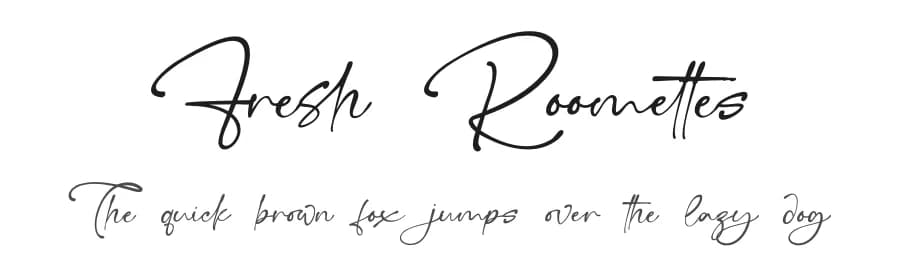 Fresh Roomettes
The quick brown fox jumps over the lazy dog